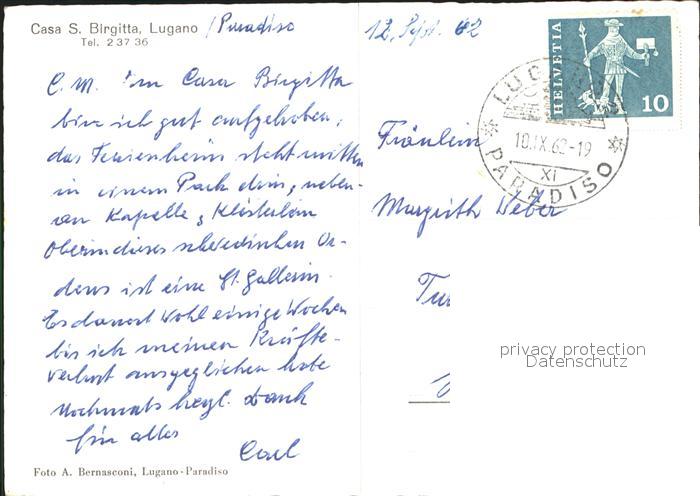 Casa S. Birgitta, Lugano / Paradiso
Tel. 2 37 36
12. Sept. 62
C. M. Im Casa Birgitta
bin ich gut aufgehoben,
das Ferienheim steht mitten
in einem Park drin, neben-
an Kapelle & Klösterlein
Oberin dieses schwedischen Or-
dens ist eine St. gallerin.
Es dauert wohl einige Wochen
bis ich meinen Kräfte-
verlust ausgeglichen habe
Nochmals herzl. Dank
für alles
Carl
Foto A. Bernasconi, Lugano-Paradiso
HELVETIA
10
LUGANO
10.IX.62-19
XI
PARADISO
Fräulein
Margrith Weber
privacy protection
Datenschutz